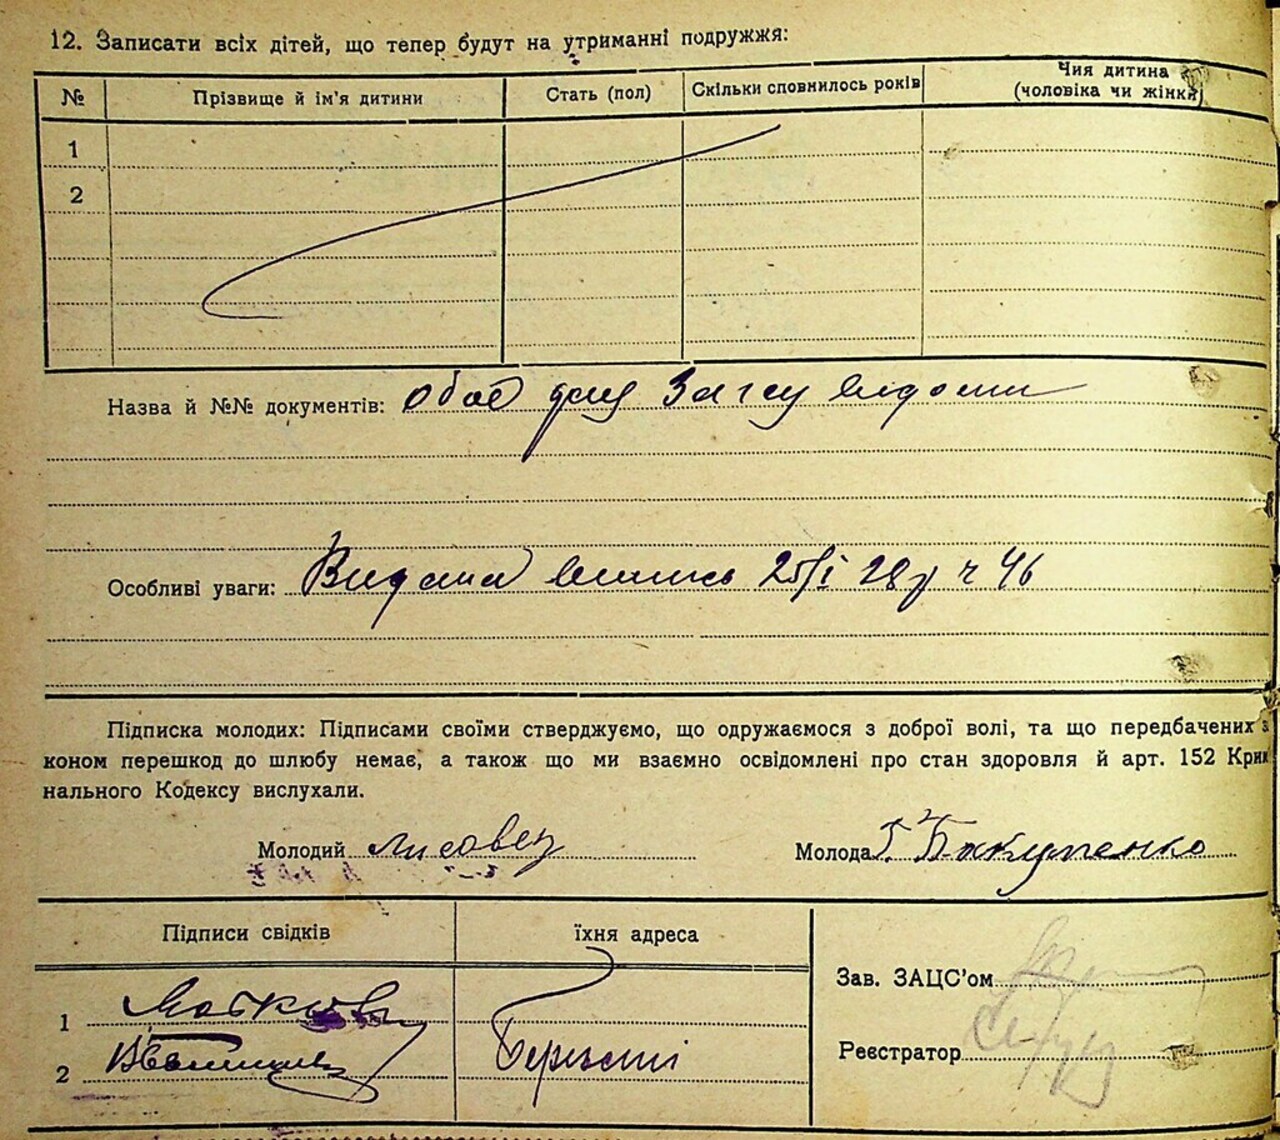 12. Записати всіх дітей, що тепер будут на утриманні подружжя:
№ Прізвище й ім'я дитини Стать (пол) Скільки сповнилось років Чия дитина (чоловіка чи жінки)
1
2
Назва й №№ документів: обоє для Загсу відоми
Особливі уваги: Видана випись 25/I 28 р ч 46
Підписка молодих: Підписами своїми стверджуємо, що одружаємося з доброї волі, та що передбачених з
коном перешкод до шлюбу немає, а також що ми взаємно освідомлені про стан здоровля й арт. 152 Кри
нального Кодексу вислухали.
Молодий Лисовец Молода Г. Бакуменко
Підписи свідків їхня адреса
Зав. ЗАЦС'ом
1
Реєстратор
2 Березані